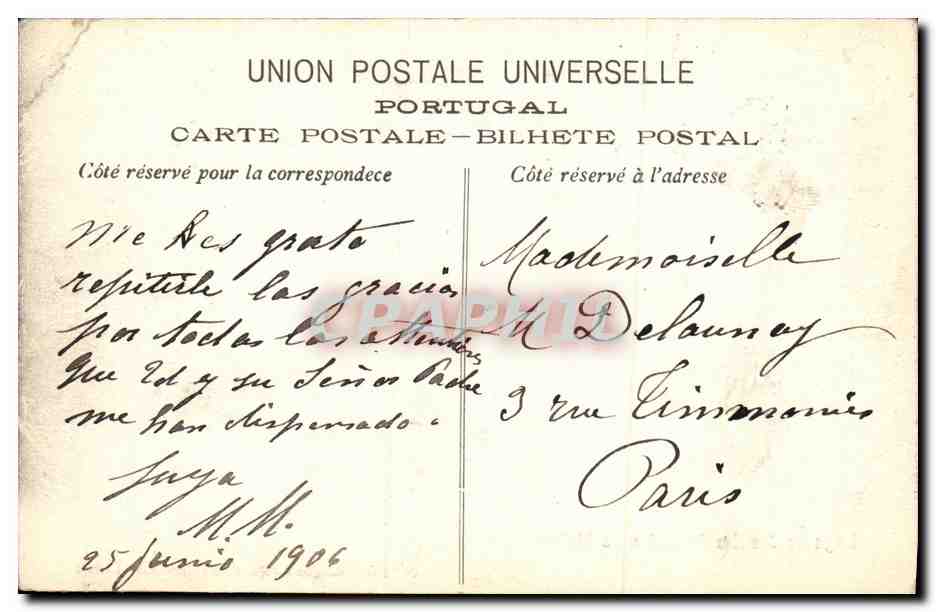 UNION POSTALE UNIVERSELLE
PORTUGAL
CARTE POSTALE – BILHETE POSTAL
Côté réservé pour la correspondece
Côté réservé à l'adresse
Me es grato
repitirle las gracias
por todas las attenciones
que Vd y su Señor Padre
me han dispensado.
Suya
M. M.
25 Junio 1906
Mademoiselle
M Delaunay
3 rue Timmonier
Paris
CPAPHIL